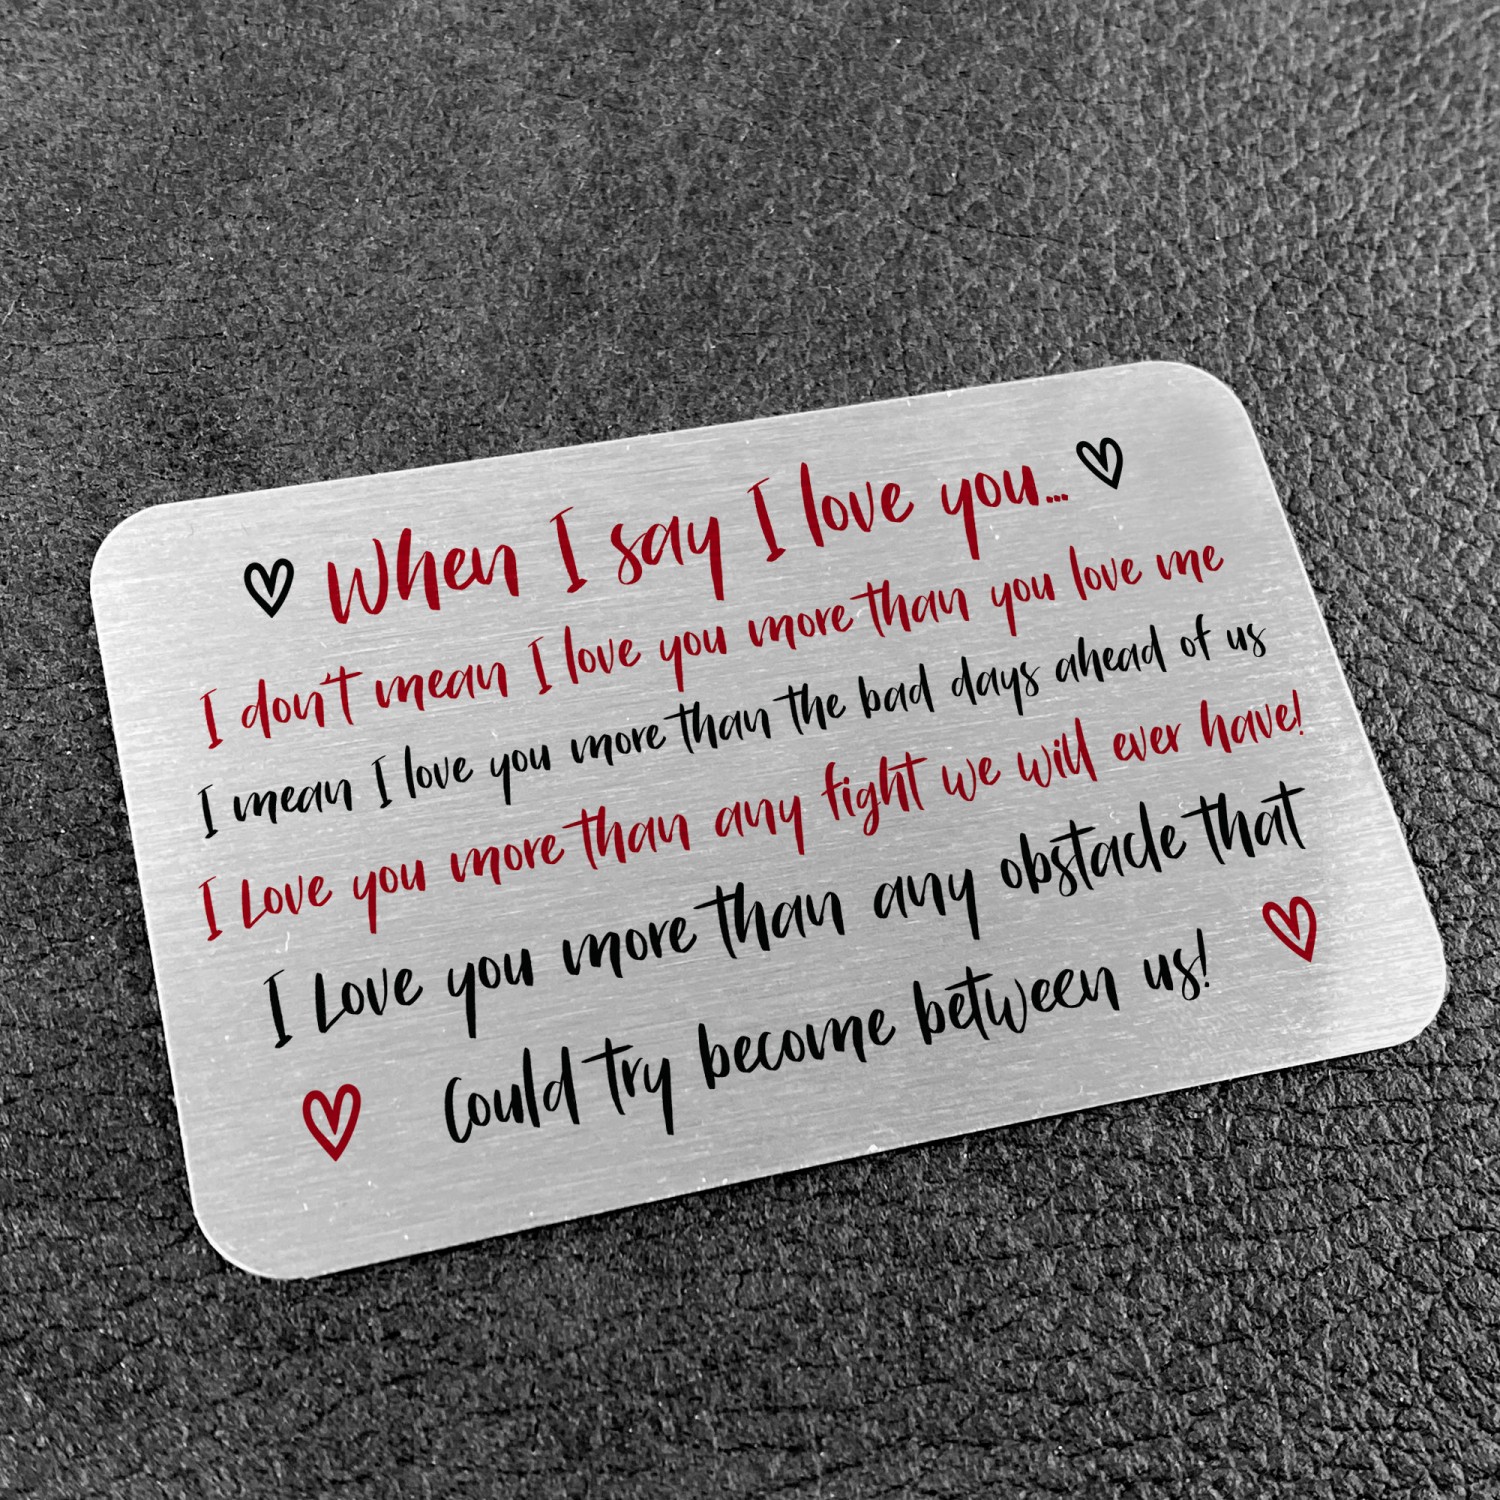 When I say I love you...
I don't mean I love you more than you love me
I mean I love you more than the bad days ahead of us
I Love you more than any fight we will ever have!
I Love you more than any obstacle that
Could try become between us!